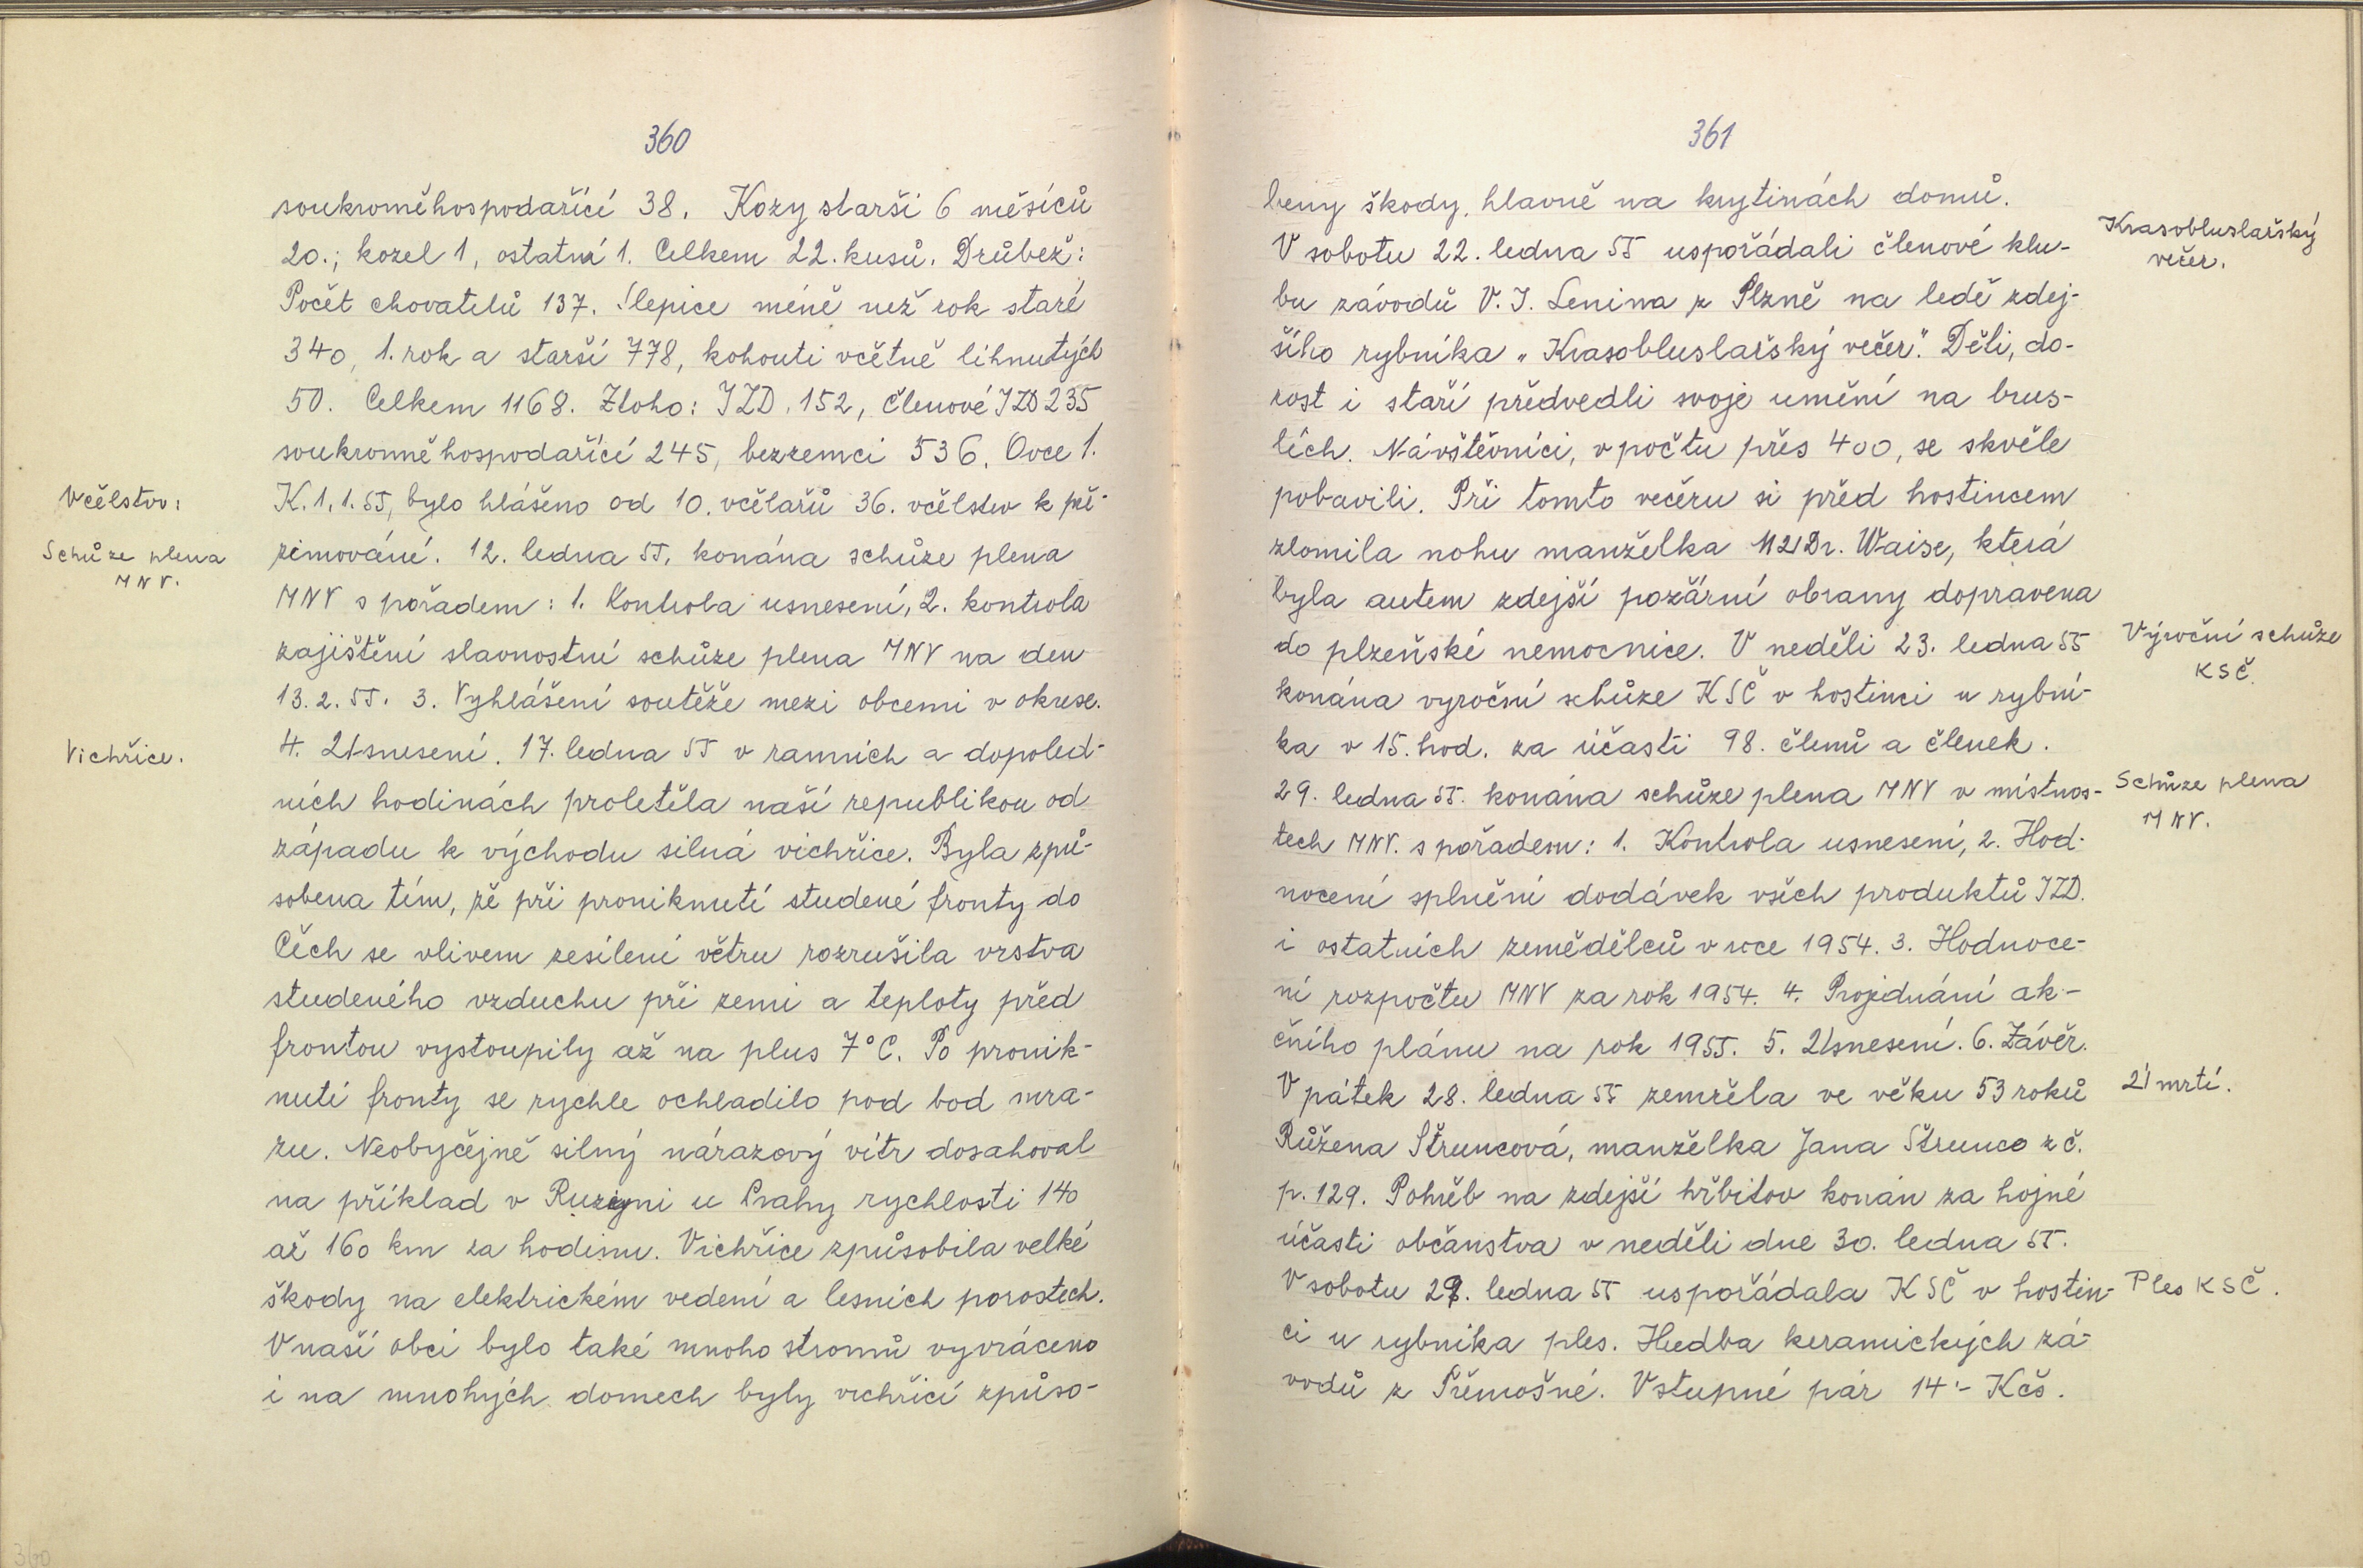 360
soukroměhospodařící 38. Kozy starší 6 měsíců
20.; kozel 1, ostatní 1. Celkem 22. kusů. Drůbež:
Počet chovatelů 137. Slepice méně než rok staré
340, 1. rok a starší 778, kohouti včetně líhnutých
50. Celkem 1168. Ztoho: JZD. 152, členové JZD 235
soukromně hospodařící 245, bezzemci 536. Ovce 1.
Včelstvo:
K. 1. 1. 55, bylo hlášeno od 10. včelařů 36. včelstev k pře-
Schůze plena
MNV.
zimováné. 12. ledna 55. konána schůze plena
MNV s pořadem: 1. Kontrola usnesení, 2. kontrola
zajištění slavnostní schůze plena MNV na den
13. 2. 55. 3. Vyhlášení soutěže mezi obcemi v okrese.
Vichřice.
4. Usnesení. 17. ledna 55 v ranních a dopoled-
ních hodinách proletěla naší republikou od
západu k východu silná vichřice. Byla způ-
sobena tím, že při proniknutí studené fronty do
Čech se vlivem zesílení větru rozrušila vrstva
studeného vzduchu při zemi a teploty před
frontou vystoupily až na plus 7°C. Po pronik-
nutí fronty se rychle ochladilo pod bod mra-
zu. Neobyčejně silný nárazový vítr dosahoval
na příklad v Ruzyni u Prahy rychlosti 140
až 160 km za hodinu. Vichřice způsobila velké
škody na elektrickém vedení a lesních porostech.
V naší obci bylo také mnoho stromů vyvráceno
i na mnohých domech byly vichřicí způso-
361
beny škody, hlavně na krytinách domů.
Krasobluslařský
večer.
V sobotu 22. ledna 55 uspořádali členové klu-
bu závodů V. J. Lenina z Plzně na ledě zdej-
šího rybníka „Krasobluslařský večer". Děti, do-
rost i staří předvedli svoje umění na brus-
lích. Návštěvníci, v počtu přes 400, se skvěle
pobavili. Při tomto večeru si před hostincem
zlomila nohu manželka MUDr. Waise, která
byla autem zdejší požární obrany dopravena
Výroční schůze
KSČ.
do plzeňské nemocnice. V neděli 23. ledna 55
konána vyroční schůze KSČ v hostinci u rybní-
ka v 15. hod. za účasti 98. členů a členek.
Schůze plena
MNV.
29. ledna 55. konána schůze plena MNV v místnos-
tech MNV. s pořadem: 1. Kontrola usnesení, 2. Hod-
nocení splnění dodávek všech produktů JZD.
i ostatních zemědělců v roce 1954. 3. Hodnoce-
ní rozpočtu MNV za rok 1954. 4. Projednání ak-
čního plánu na rok 1955. 5. Usnesení. 6. Závěr.
Úmrtí.
V pátek 28. ledna 55 zemřela ve věku 53 roků
Růžena Štruncová, manželka Jana Štrunce z č.
p. 129. Pohřeb na zdejší hřbitov konán za hojné
účasti občanstva v neděli dne 30. ledna 55.
Ples KSČ.
V sobotu 29. ledna 55 uspořádala KSČ v hostin-
ci u rybníka ples. Hudba keramických zá-
vodů z Třemošné. Vstupné pár 14·- Kčs.
360